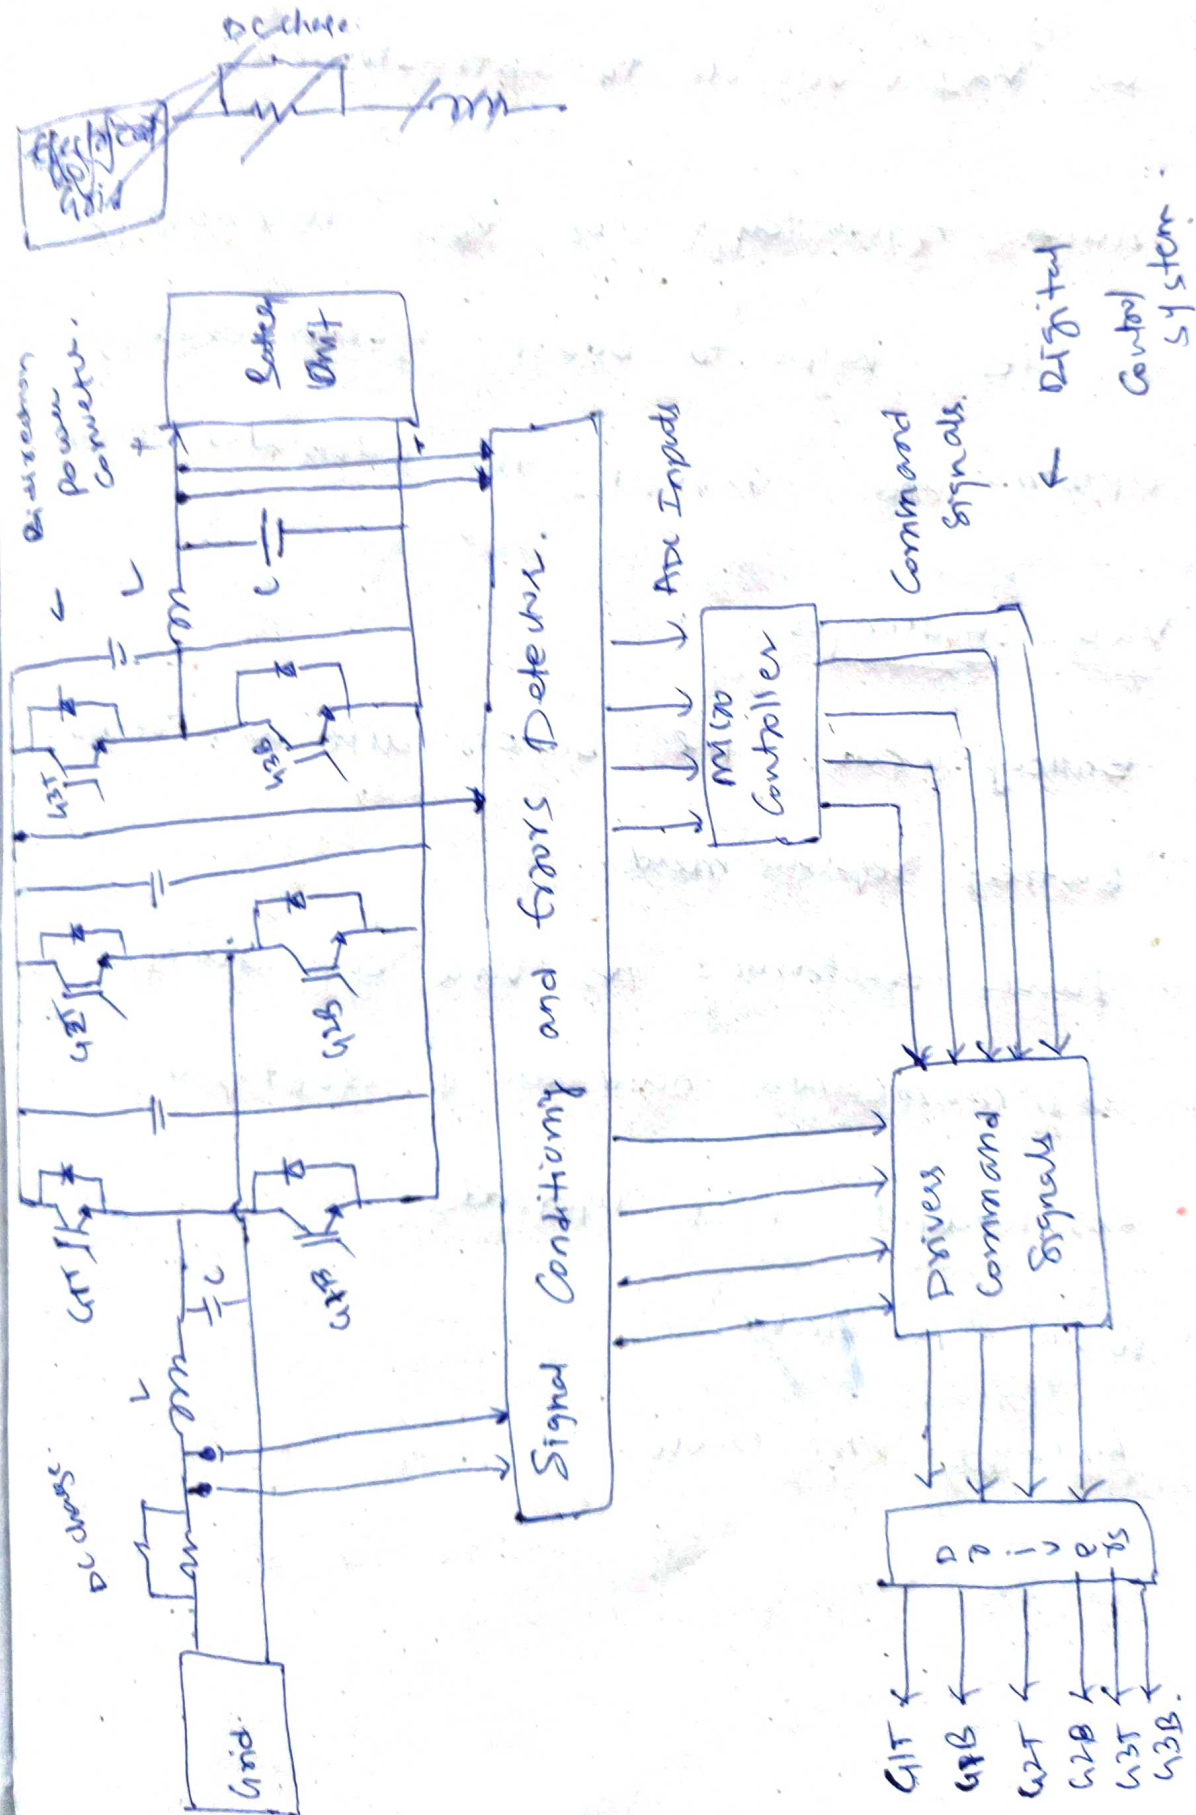 DC charge.
Grid
Bidirection
power
converter.
←
L
+
Battery
Unit
+
C
G3T
G3B
G2T
G2B
G1T
G1B
C
L
DC charge.
Grid.
Signal Conditioning and Errors Detector.
ADC Inputs
Micro
Controller
Command
Signals.
← Digital
Control
System.
Drivers
Command
Signals
Drivers
G1T
G1B
G2T
G2B
G3T
G3B.